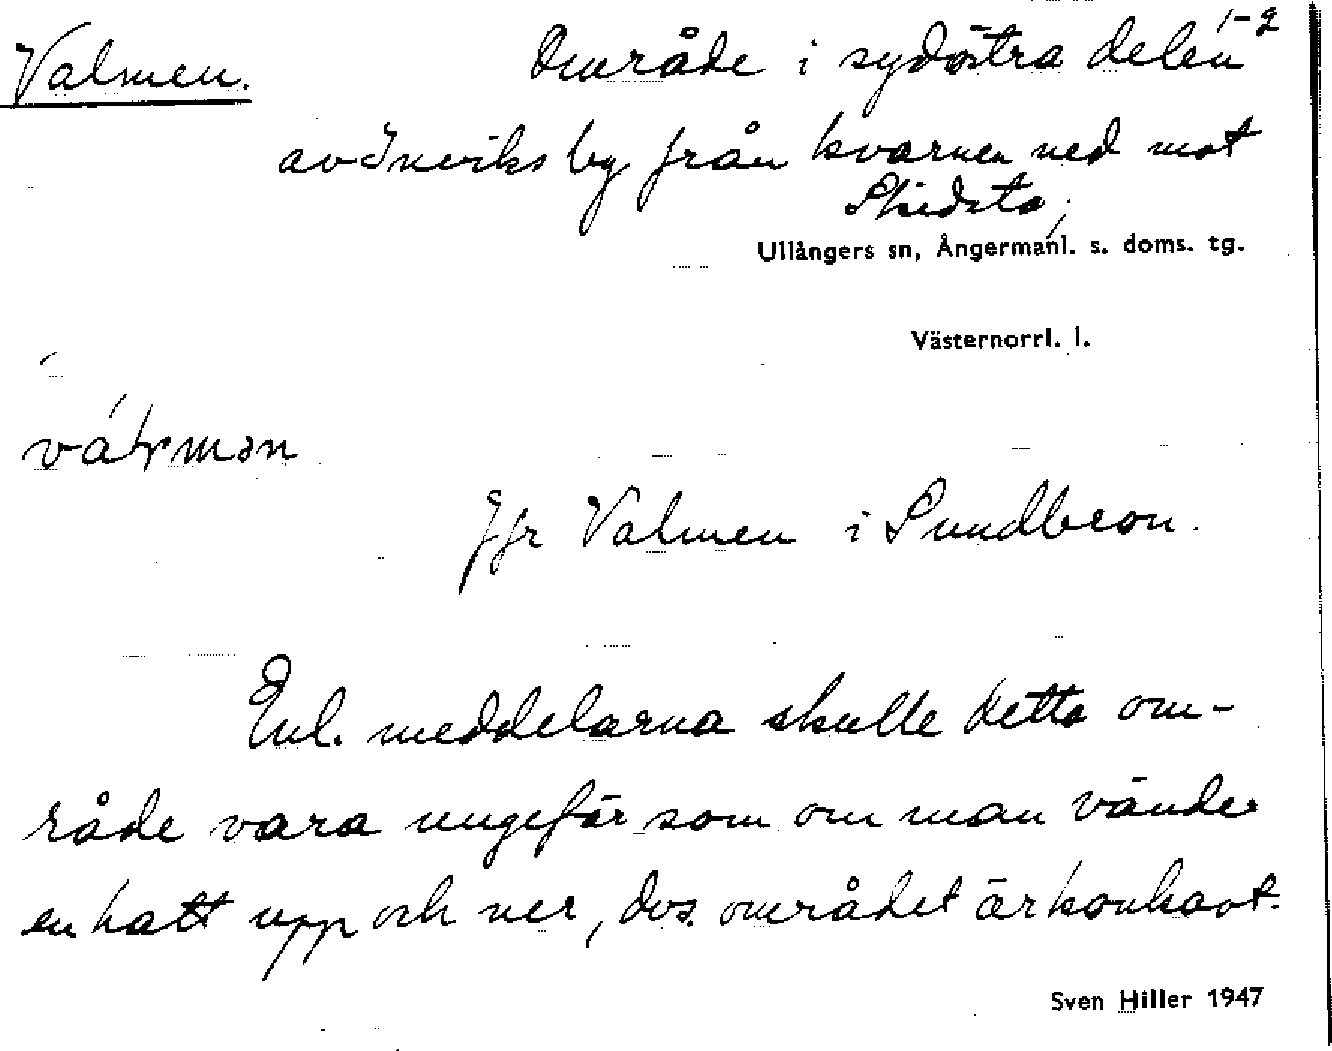 Valmen. Område i sydöstra delen 1-2
av Inviks by från kvarnen ned mot
Skidsta,
Ullångers sn, Ångermanl. s. doms. tg.
Västernorrl. l.
Jfr Valmen i Sundbron.
Enl. meddelarna skulle detta om-
råde vara ungefär som om man vänder
en hatt upp och ner, dvs. området är konkavt.
Sven Hiller 1947